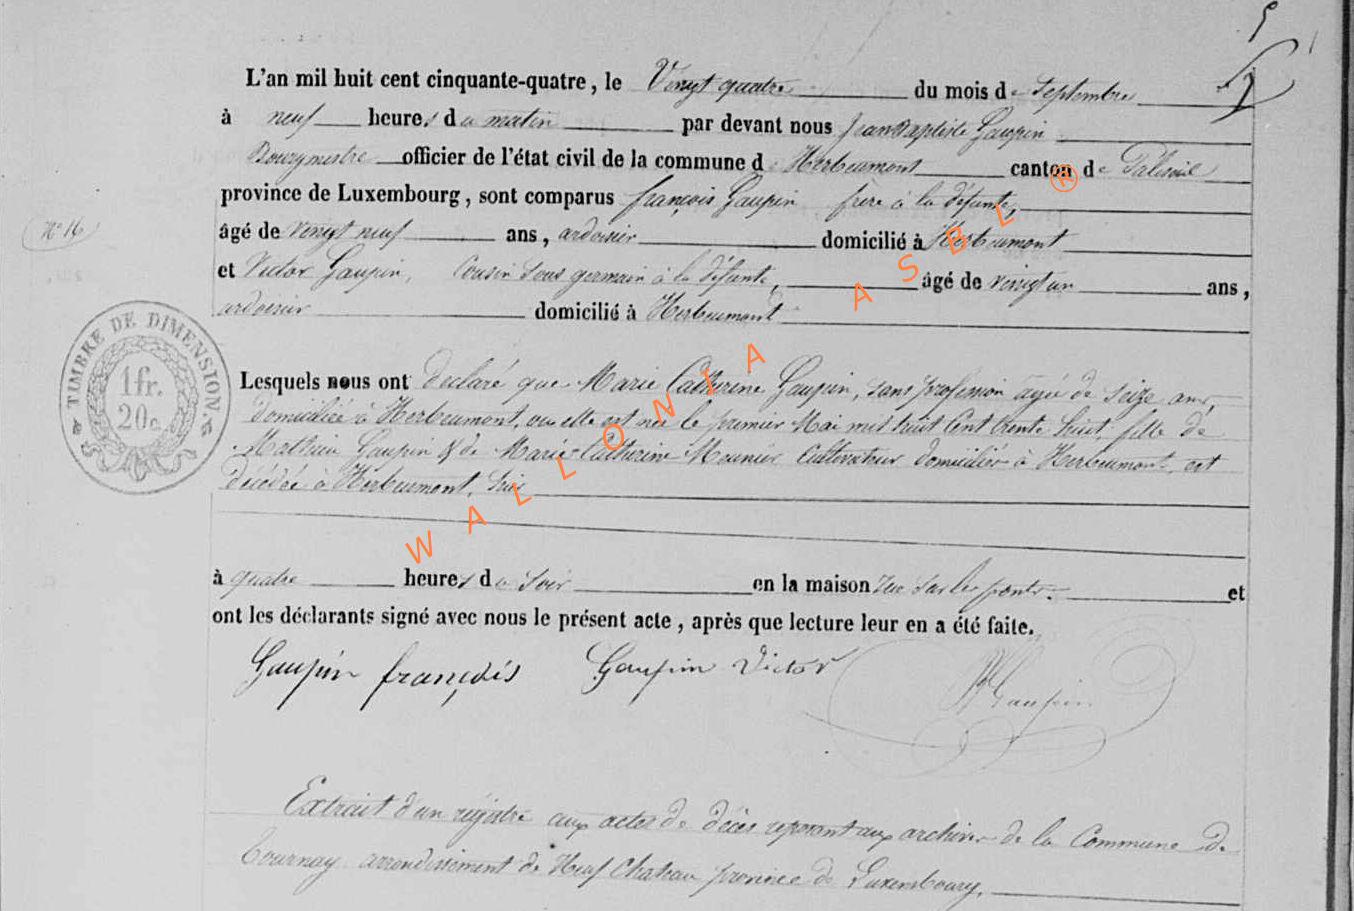 L'an mil huit cent cinquante-quatre, le Vingt quatre du mois de Septembre
à neuf heures du matin par devant nous Jean Baptiste Gaupin
Bourgmestre officier de l'état civil de la commune d Herbeumont canton de Paliseul
province de Luxembourg, sont comparus françois Gaupin frère à la défunte,
N° 16
âgé de vingt neuf ans, ardoisier domicilié à Herbeumont
et Victor Gaupin, Cousin sous germain à la défunte, âgé de vingt un ans,
ardoisier domicilié à Herbeumont
TIMBRE DE DIMENSION.
1 fr.
20 c
Lesquels nous ont declaré que Marie Catherine Gaupin, sans profession agée de Seize ans,
domiciliée à Herbeumont, ou elle est née le premier Mai mil huit Cent trente huit, fille de
Mathieu Gaupin & de Marie Catherine Meunier Cultivateur domicilier à Herbeumont est
décédée à Herbeumont, hier
à quatre heures du Soir en la maison rue Sur les ponts. et
ont les déclarants signé avec nous le présent acte, après que lecture leur en a été faite.
Gaupin françois Gaupin Victor Gaupin
Extrait d'un régistre aux actes de décès reposant aux archives de la Commune de
Tournay arrondissement de Neuf Chateau province de Luxembourg.
WALLONIA ASBL ®